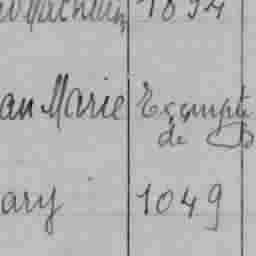 1894
an Marie Exempté
de
ary 1049